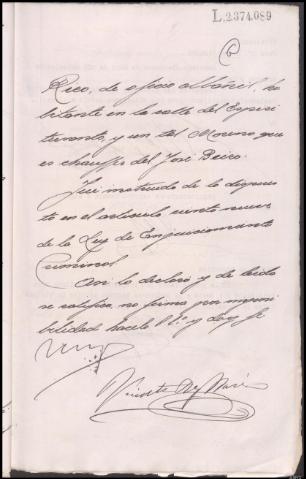 L.2374.089
6
Rico, de oficio albañil, ha
bitante en la calle del Espiri
tu santo, y un tal Moreno que
es chauffer del José Beiro.
Fue instruido de lo dispues
to en el artículo ciento nueve
de la Ley de Enjuiciamiento
Criminal
Así lo declaró y de leido
se ratifica, no firma por imposi
bilidad hacelo S.Sª y doy fe
Vicente